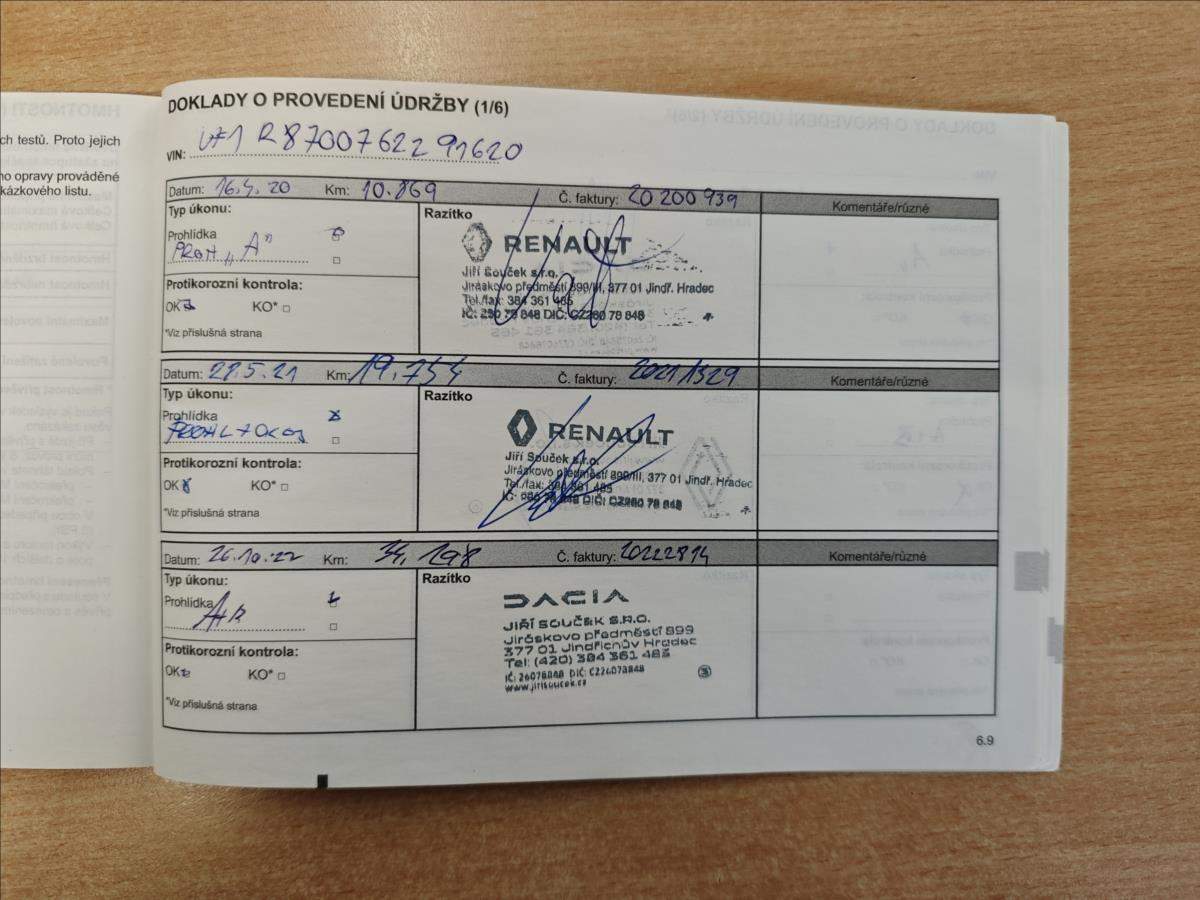 ch testů. Proto jejich
no opravy prováděné
kázkového listu.
DOKLADY O PROVEDENÍ ÚDRŽBY (1/6)
VIN: VF1R8700762291620
Datum: 16.4.20 Km: 10.869 Č. faktury: 20 200 939 Komentáře/různé
Typ úkonu:
Razítko
Prohlídka
PROH. „A"
RENAULT
Jiří Souček s.r.o.
Jiráskovo předměstí 899/III, 377 01 Jindř. Hradec
Tel./fax: 384 361 485
IČ: 260 78 848 DIČ: CZ260 78 848
Protikorozní kontrola:
OK KO*
*Viz příslušná strana
Datum: 27.5.21 Km: 19.754 Č. faktury: 2021/1329 Komentáře/různé
Typ úkonu:
Razítko
Prohlídka
RENAULT
Jiří Souček s.r.o.
Jiráskovo předměstí 899/III, 377 01 Jindř. Hradec
Tel./fax: 384 361 485
IČ: 260 78 848 DIČ: CZ260 78 848
Protikorozní kontrola:
OK KO*
*Viz příslušná strana
Datum: 26.10.22 Km: 34,198 Č. faktury: 20222814 Komentáře/různé
Typ úkonu:
Razítko
Prohlídka
DACIA
JIŘÍ SOUČEK S.R.O.
Jiráskovo předměstí 899
377 01 Jindřichův Hradec
Tel: (420) 384 361 485
IČ: 26078848 DIČ: CZ26078848
www.jirisoucek.cz
3
Protikorozní kontrola:
OK KO*
*Viz příslušná strana
6.9